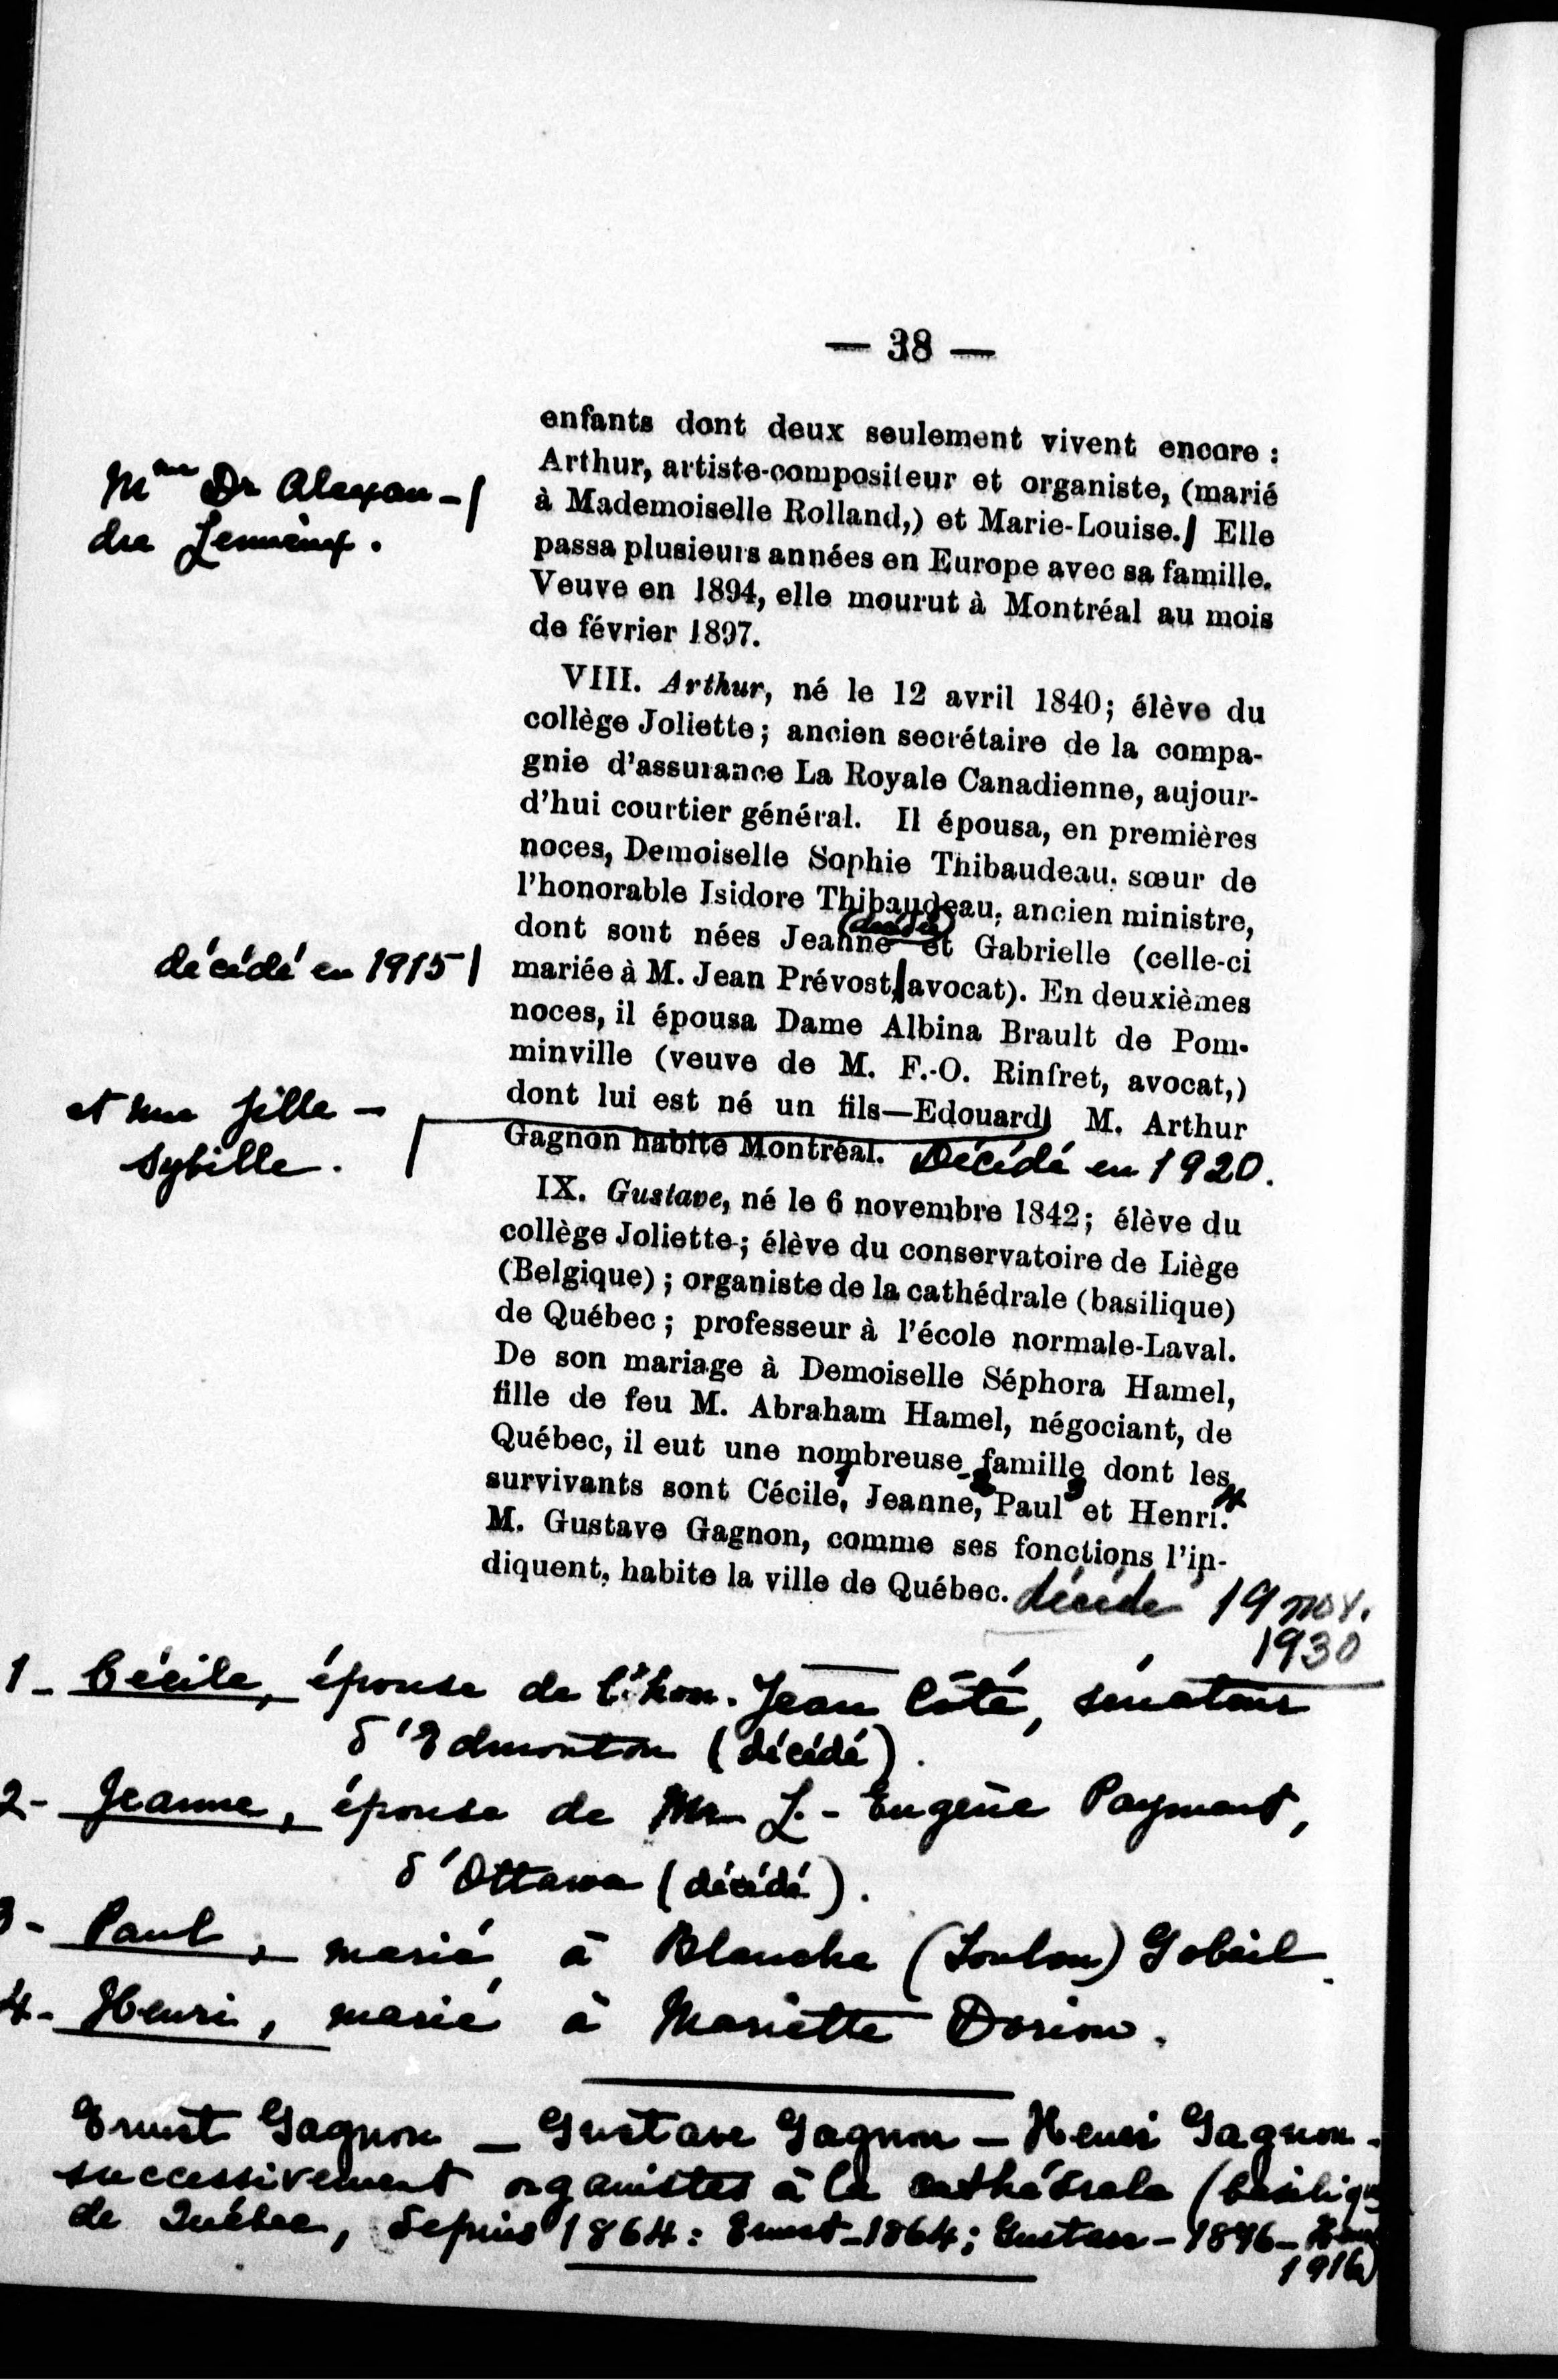 — 38 —
enfants dont deux seulement vivent encore :
Arthur, artiste-compositeur et organiste, (marié
à Mademoiselle Rolland,) et Marie-Louise./ Elle
passa plusieurs années en Europe avec sa famille.
Veuve en 1894, elle mourut à Montréal au mois
de février 1897.
Mme Dr Alexan-/
dre
VIII. Arthur, né le 12 avril 1840; élève du
collège Joliette; ancien secrétaire de la compa-
gnie d'assurance La Royale Canadienne, aujour-
d'hui courtier général. Il épousa, en premières
noces, Demoiselle Sophie Thibaudeau, sœur de
l'honorable Isidore Thibaudeau, ancien ministre,
(décédée)
dont sont nées Jeanne et Gabrielle (celle-ci
mariée à M. Jean Prévost,/avocat). En deuxièmes
noces, il épousa Dame Albina Brault de Pom-
minville (veuve de M. F.-O. Rinfret, avocat,)
dont lui est né un fils—Edouard/ M. Arthur
Gagnon habite Montréal. Décédé en 1920.
décédé en 1915 /
et une fille —
Sybille.
IX. Gustave, né le 6 novembre 1842; élève du
collège Joliette; élève du conservatoire de Liège
(Belgique) ; organiste de la cathédrale (basilique)
de Québec ; professeur à l'école normale-Laval.
De son mariage à Demoiselle Séphora Hamel,
fille de feu M. Abraham Hamel, négociant, de
Québec, il eut une nombreuse famille dont les
1 2 3 4
survivants sont Cécile, Jeanne, Paul et Henri.
M. Gustave Gagnon, comme ses fonctions l'in-
diquent, habite la ville de Québec. décédé 19 nov.
1930
1 - Cécile, épouse de l'hon. Jean Côté, sénateur
d'Edmonton (décédé).
2 - Jeanne, épouse de Mr L.-Eugène Payment,
d'Ottawa (décédé).
3 - Paul, marié à Blanche (Loulou) Gobeil.
4 - Henri, marié à Mariette Dorion.
Ernest Gagnon — Gustave Gagnon — Henri Gagnon -
successivement organistes à la cathédrale (basilique
de Québec, depuis 1864 : Ernest - 1864 ; Gustave - 1876 - Henri
1916)